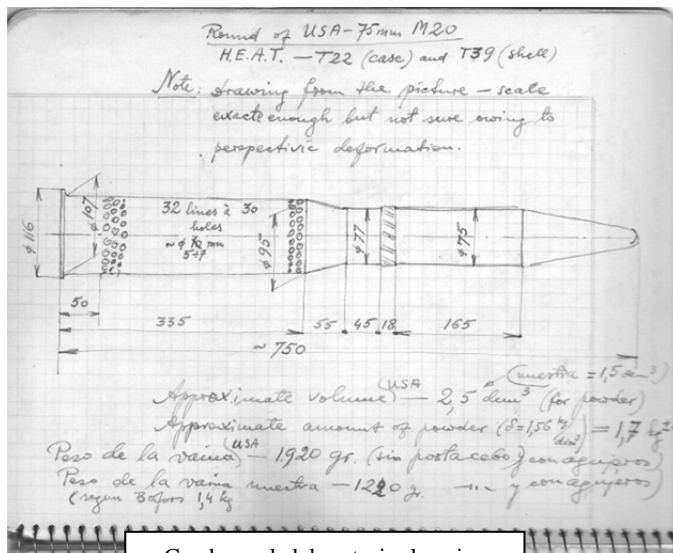 Round of USA-75mm M20
H.E.A.T. — T22 (case) and T39 (shell)
Note: drawing from the picture — scale
exacte enough but not sure owing to
perspectivic deformation.
32 lines à 30
holes
~ ϕ mm
5÷7
ϕ 116
ϕ 107
ϕ 95
ϕ 77
ϕ 75
50
335
55
45
18
165
~ 750
(nuestra = 1,5 dcm³)
Approximate volume (USA) — 2,5 dcm³ (for powder)
Approximate amount of powder (δ=1,56 kg/dcm³) = 1,7 kg
Peso de la vaina (USA) — 1.920 gr. (sin portacebo y con agujeros)
Peso de la vaina nuestra — 1220 g. —"— y con agujeros)
(segun Bofors 1,4 kg